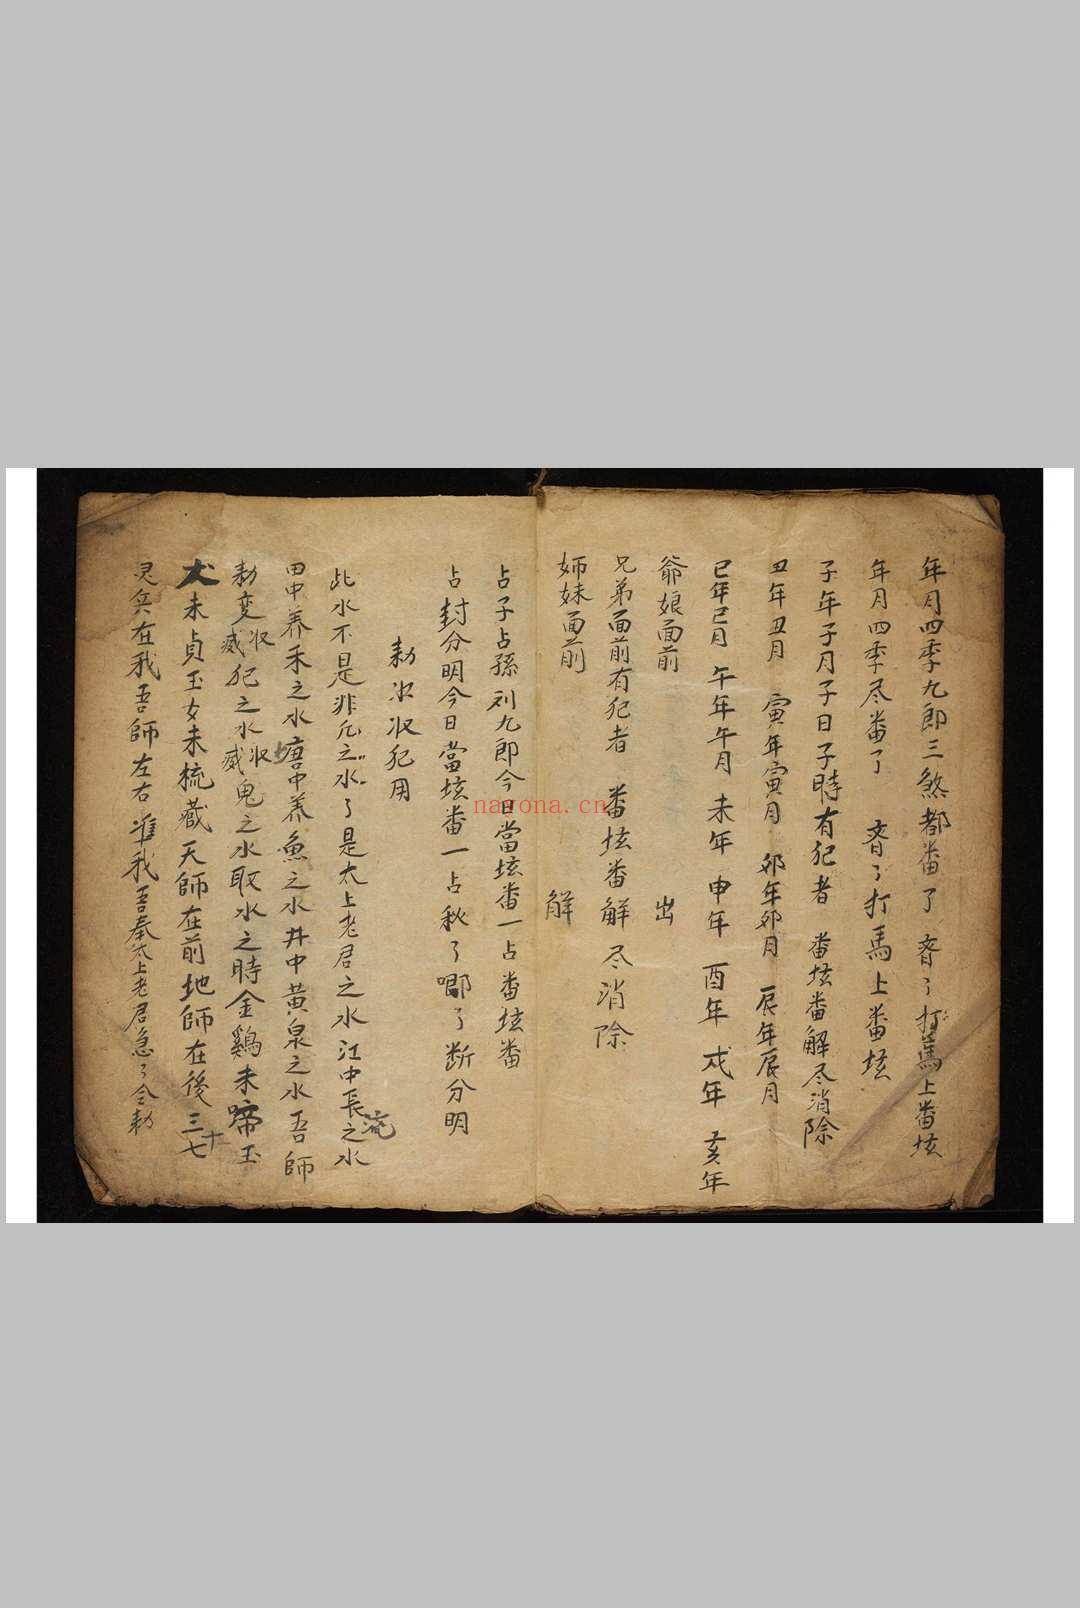 年月四季九郎三煞都番了 斉了打馬上番垓
年月四季尽番了 斉了打馬上番垓
子年子月子日子時有犯者 番垓番解尽消除
丑年丑月 寅年寅月 卯年卯月 辰年辰月
巳年巳月 午年午月 未年 申年 酉年 戌年 亥年
爺娘面前 出
兄弟面前有犯者 番垓番解 尽消除
姉妹面前 解
占子占孫刘九郎今日當垓番一占番垓番
占封分明今日當垓番一占秋了唧了断分明
勅水收犯用
此水不是非凡之水了是太上老君之水江中長流之水
田中养禾之水塘中养魚之水井中黄泉之水吾師
勅变收威犯之水收威鬼之水取水之時金鷄未啼玉
犬未貞玉女未梳蔵天師在前地師在後三十七
灵兵在我吾師左右准我吾奉太上老君急了令勅
nayona.cn